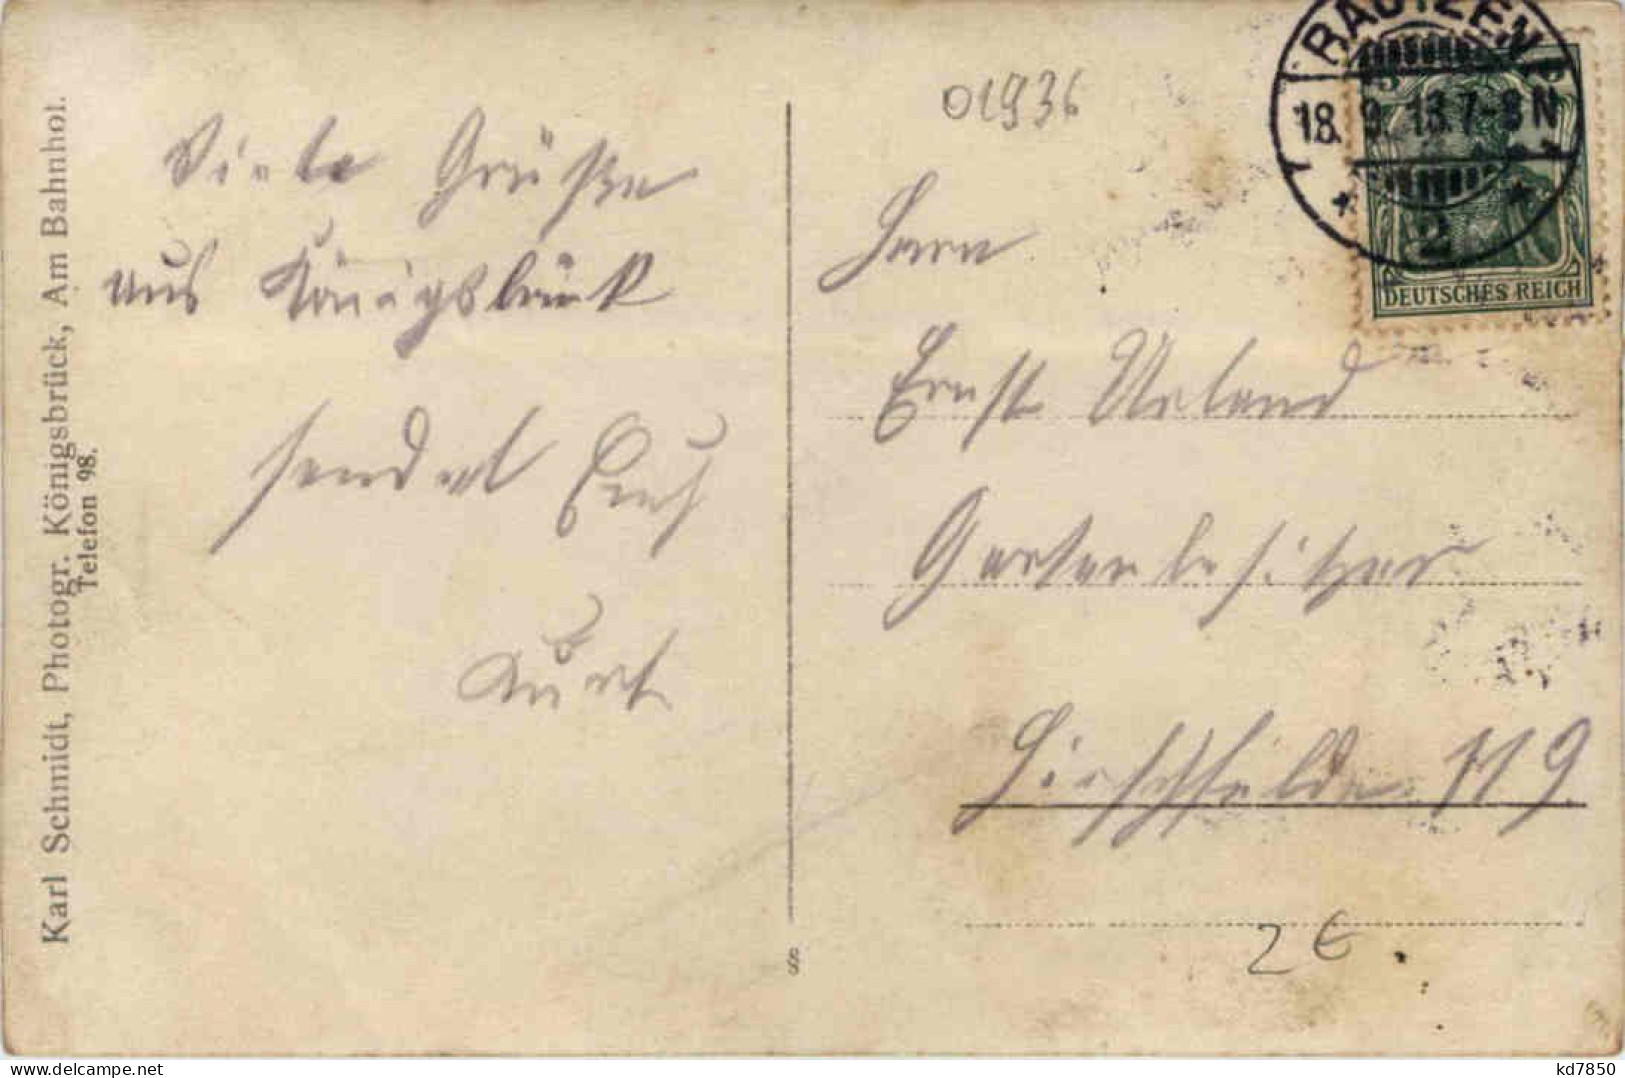 Karl Schmidt, Photogr. Königsbrück, Am Bahnhof.
Telefon 98.
Viele Grüße
aus Königsbrück
sendet Euch
Kurt
01936
BAUTZEN
18.9.13.7-8N
2
DEUTSCHES REICH
Herrn
Ernst
Gartenbesitzer
Hirschfelde 119
2€.
8
kd7850